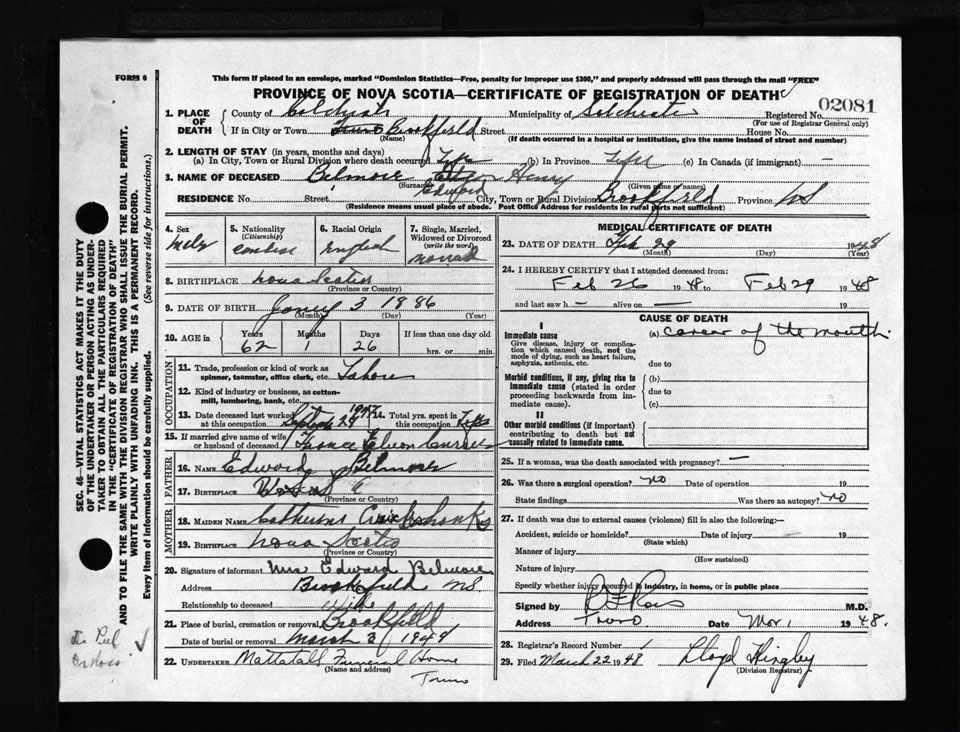 FORM 6
This form if placed in an envelope, marked "Dominion Statistics—Free, penalty for improper use $300," and properly addressed will pass through the mail "FREE"
PROVINCE OF NOVA SCOTIA—CERTIFICATE OF REGISTRATION OF DEATH
02081
1. PLACE OF DEATH
County of Colchester Municipality of Colchester Registered No.
(For use of Registrar General only)
If in City or Town Truro Brookfield Street House No.
(Name) (If death occurred in a hospital or institution, give the name instead of street and number)
2. LENGTH OF STAY (in years, months and days)
(a) In City, Town or Rural Division where death occurred Life (b) In Province Life (c) In Canada (if immigrant) —
3. NAME OF DECEASED Belmore Henry
(Surname) (Given name or names)
Edward
RESIDENCE No. Street City, Town or Rural Division Brookfield Province NS
(Residence means usual place of abode. Post Office Address for residents in rural parts not sufficient)
4. Sex
5. Nationality
(Citizenship)
6. Racial Origin
English
7. Single, Married, Widowed or Divorced
(write the word)
8. BIRTHPLACE Nova Scotia
(Province or Country)
9. DATE OF BIRTH 3 1886
(Month) (Day) (Year)
10. AGE in Years Months Days If less than one day old
62 1 26 hrs. or min.
OCCUPATION
11. Trade, profession or kind of work as spinner, teamster, office clerk, etc.
12. Kind of industry or business, as cotton-mill, lumbering, bank, etc.
13. Date deceased last worked at this occupation 1947
14. Total yrs. spent in this occupation
15. If married give name of wife or husband of deceased
FATHER
16. NAME Edward Belmore
17. BIRTHPLACE
(Province or Country)
MOTHER
18. MAIDEN NAME
19. BIRTHPLACE Nova Scotia
(Province or Country)
20. Signature of informant Mrs Edward Belmore
Address Brookfield NS.
Relationship to deceased Wife
21. Place of burial, cremation or removal Brookfield
Date of burial or removal March 2 1948
22. UNDERTAKER Mattatall Funeral Home
(Name and address)
Truro
MEDICAL CERTIFICATE OF DEATH
23. DATE OF DEATH Feb 29 1948
(Month) (Day) (Year)
24. I HEREBY CERTIFY that I attended deceased from:
Feb 26 1948 to Feb 29 1948
and last saw h — alive on — 19
CAUSE OF DEATH
I
Immediate cause
Give disease, injury or complication which caused death, not the mode of dying, such as heart failure, asphyxia, asthenia, etc.
(a) cancer of the mouth.
due to
Morbid conditions, if any, giving rise to immediate cause (stated in order proceeding backwards from immediate cause).
(b)
due to
(c)
II
Other morbid conditions (if important) contributing to death but not causally related to immediate cause.
25. If a woman, was the death associated with pregnancy? —
26. Was there a surgical operation? no Date of operation 19
State findings Was there an autopsy? no
27. If death was due to external causes (violence) fill in also the following:—
Accident, suicide or homicide? Date of injury 19
(State which)
Manner of injury
(How sustained)
Nature of injury
Specify whether injury occurred in industry, in home, or in public place
Signed by M.D.
Address Truro Date Mar 1 1948.
28. Registrar's Record Number 1
29. Filed March 22 1948 Lloyd Hingley
(Division Registrar)
SEC. 46—VITAL STATISTICS ACT MAKES IT THE DUTY
OF THE UNDERTAKER OR PERSON ACTING AS UNDERTAKER TO OBTAIN ALL THE PARTICULARS REQUIRED
IN THE "CERTIFICATE OF REGISTRATION OF DEATH"
AND TO FILE THE SAME WITH THE DIVISION REGISTRAR WHO SHALL ISSUE THE BURIAL PERMIT.
WRITE PLAINLY WITH UNFADING INK. THIS IS A PERMANENT RECORD.
Every item of information should be carefully supplied. (See reverse side for instructions.)